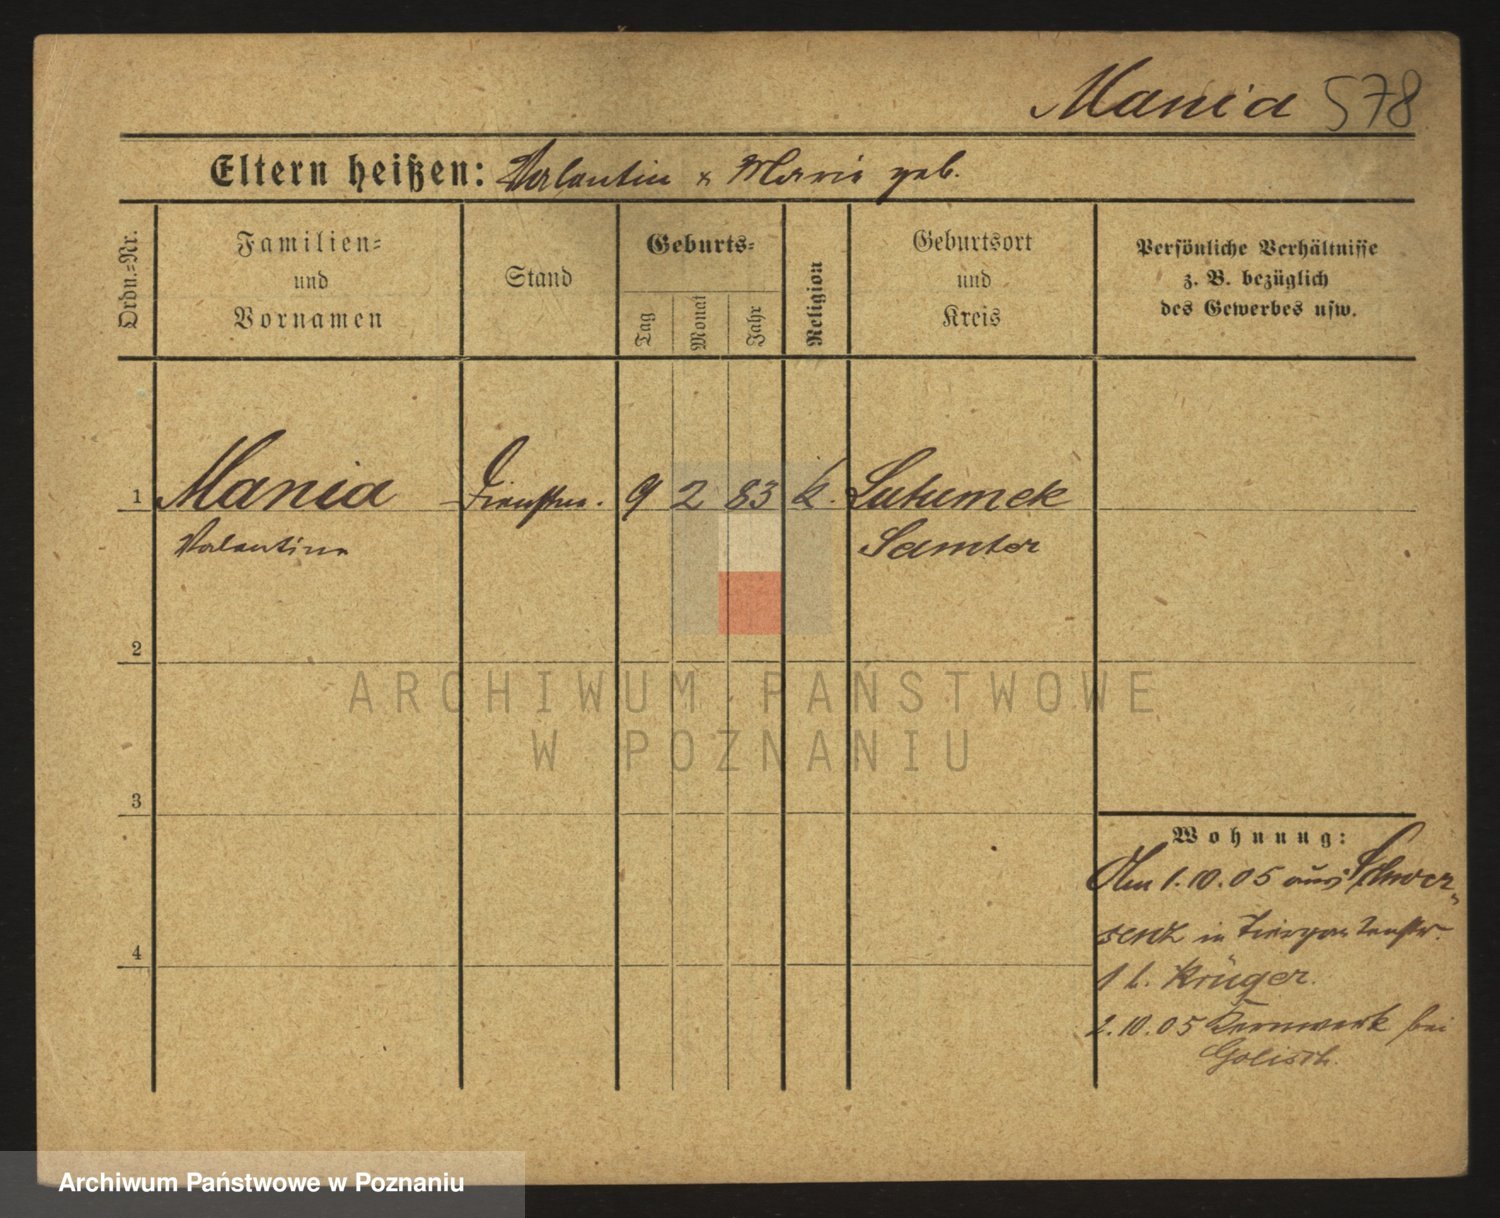 Mania 578
Eltern heißen: Valentin & Marie geb.
Ordn.=Nr.
Familien=
und
Vornamen
Stand
Geburts=
Tag
Monat
Jahr
Religion
Geburtsort
und
Kreis
Persönliche Verhältnisse
z. B. bezüglich
des Gewerbes usw.
1 Mania 9 2 83 k. Lutumek
Valentina Samter
2
3
4
Wohnung:
Am 1.10.05 aus Schwer„
senz in Tiergartenstr.
1 b. Krüger.
2.10.05 Kernwerk bei
Golisch.
ARCHIWUM PAŃSTWOWE
W POZNANIU
Archiwum Państwowe w Poznaniu